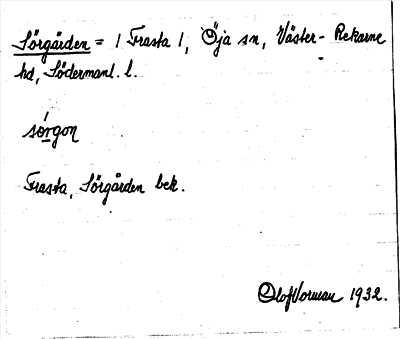 Sörgården = / Frasta /, Öja sn, Väster-Rekarne
hd, Södermanl. l.
sǿrgon
Frasta, Sörgården bek.
Olof Vorman 1932.